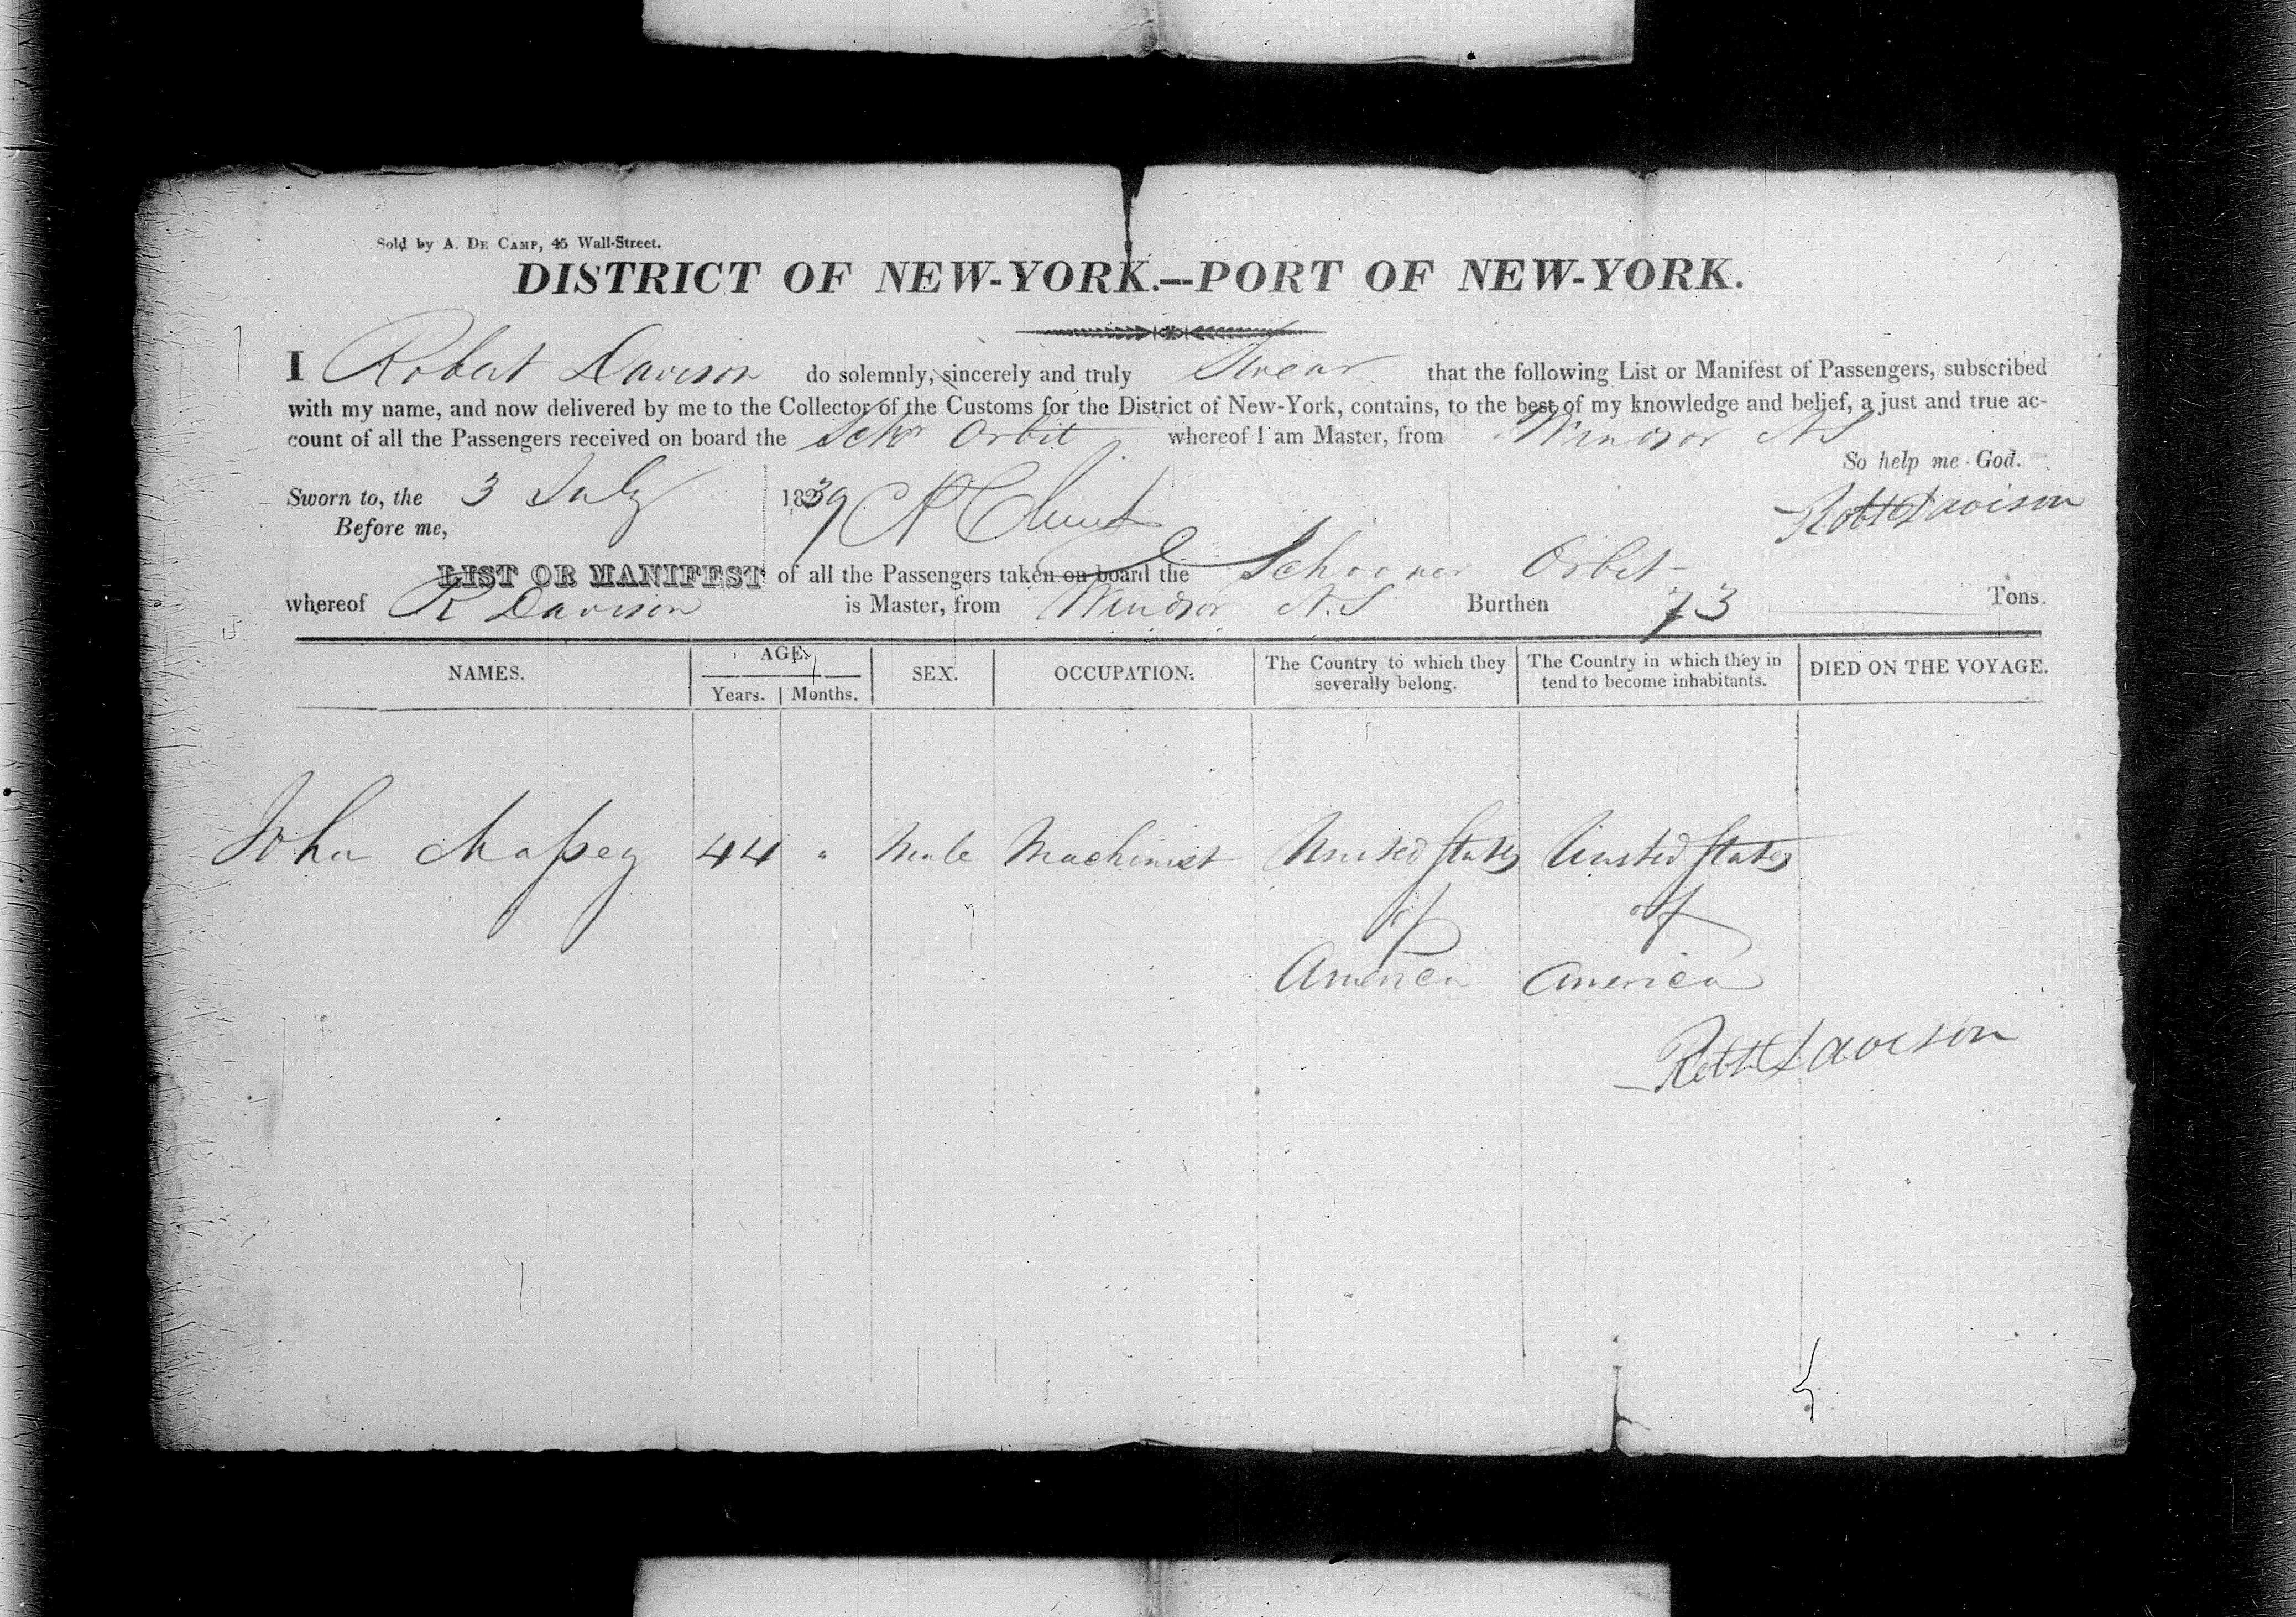 Sold by A. De Camp, 45 Wall-Street.
DISTRICT OF NEW-YORK.—PORT OF NEW-YORK.
I Robert Davison do solemnly, sincerely and truly Swear that the following List or Manifest of Passengers, subscribed
with my name, and now delivered by me to the Collector of the Customs for the District of New-York, contains, to the best of my knowledge and belief, a just and true ac-
count of all the Passengers received on board the Schr Orbit whereof I am Master, from Windsor NS
So help me God.
Sworn to, the 3 July 1839
Robt Davison
Before me,
LIST OR MANIFEST of all the Passengers taken on board the Schooner Orbit
whereof R Davison is Master, from Windsor N.S Burthen 73 Tons.
NAMES. AGE. SEX. OCCUPATION. The Country to which they severally belong. The Country in which they in tend to become inhabitants. DIED ON THE VOYAGE.
Years. Months.
John Maſsey 44 " Male Machinist United States United States
of of
America America
Robt Davison